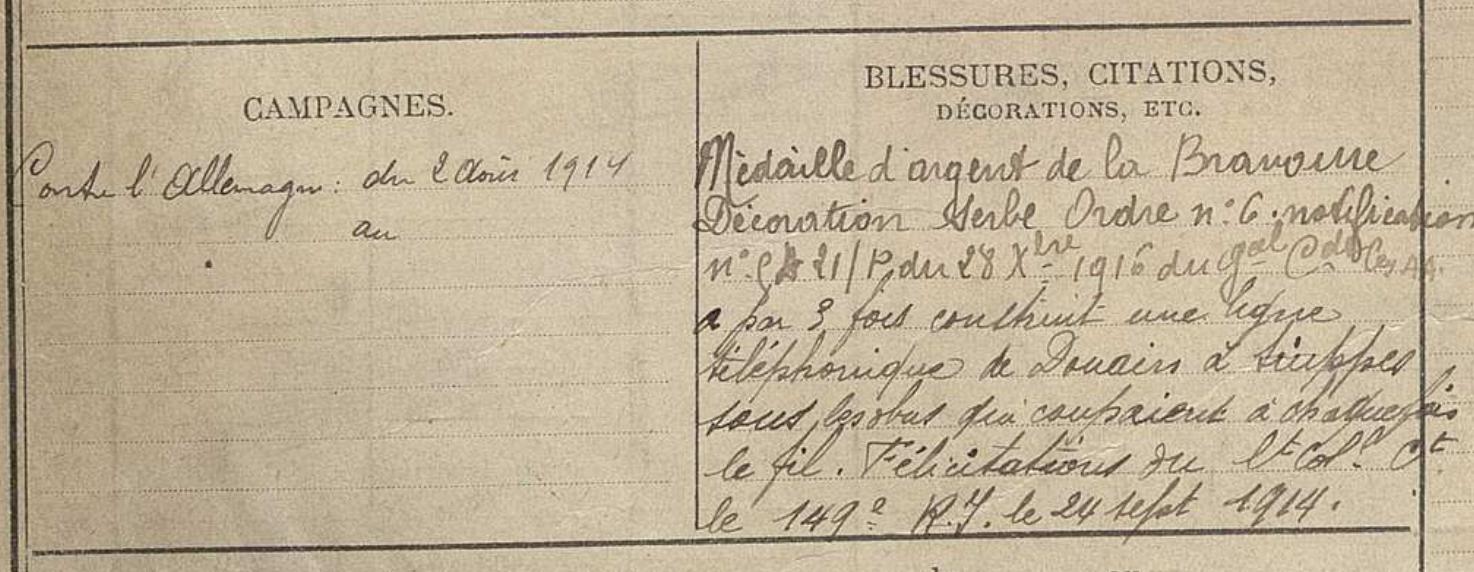 CAMPAGNES.
Contre l'Allemagne : du 2 Août 1914
au
BLESSURES, CITATIONS,
DÉCORATIONS, ETC.
Médaille d'argent de la Bravoure
Décoration Serbe Ordre n° 6. notification
n° 21/P. du 28 Xbre 1916 du Gal Cdt les AA.
a par 3 fois construit une ligne
téléphonique de Douains à Suippes
sous les obus qui coupaient à chaque fois
le fil. Félicitations du Lt Col. Ct
le 149e R.I. le 24 sept 1914.